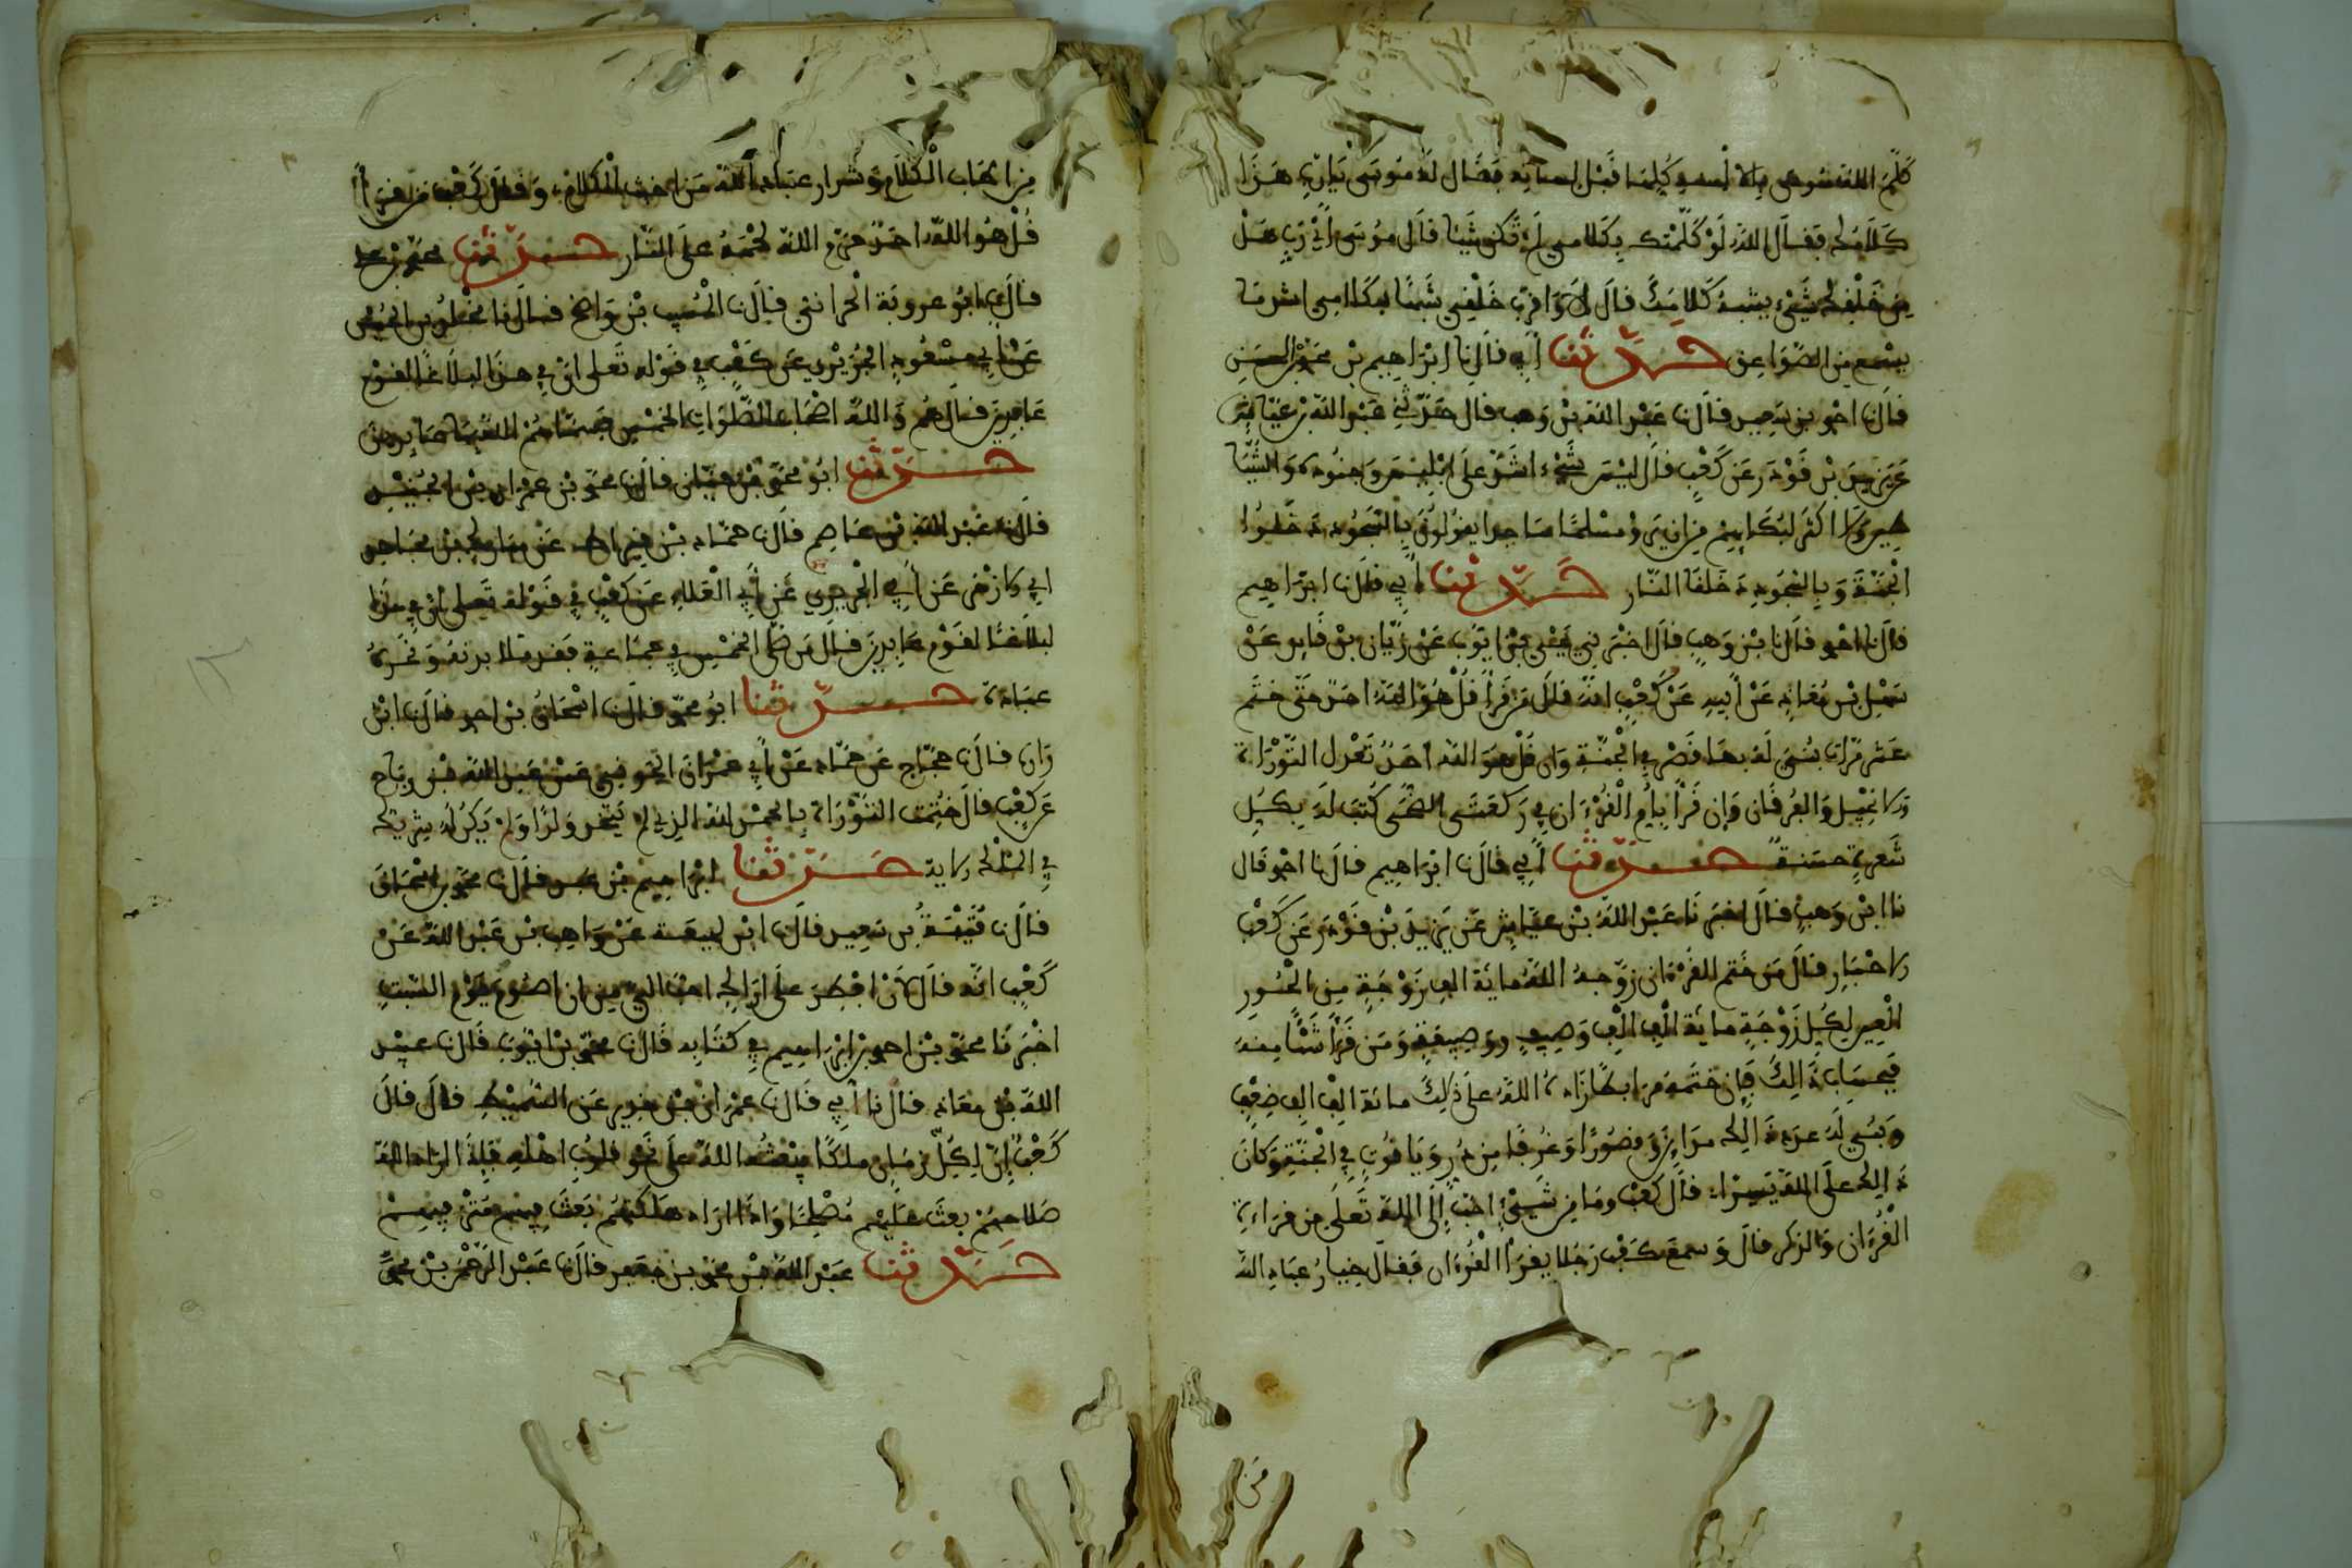 كلم الله موسى بالالسنة كلها قبل لسانه فقال له موسى يا رب هذا
كلامك فقال الله لو كلمتك بكلامي لم تكن شيئا قال موسى اي رب هل
من خلقك شيء يشبه كلامك قال لا واقرب خلقي شبها بكلامي اشد ما
يسمع من الصواعق حدثنا أبي قال نا ابراهيم بن محمد بن الحسن
قال نا احمد بن سعيد قال نا عبد الله بن وهب قال حدثني عبد الله بن عياش
عن يزيد بن قودر عن كعب قال ليس شيء اشد على ابليس وجنوده والشيا
طين ولا اكثر لبكايهم من ان يروا مسلما ساجدا يقولون بالسجود دخلوا
الجنة وبالسجود دخلنا النار حدثنا أبي قال نا ابراهيم
قال نا احمد قال نا بن وهب قال اخبرني يحيى بن ايوب عن زبان بن فايد عن
سهل بن معاذ عن أبيه عن كعب انه قال من قرأ قل هو الله احد حتى ختم
عشر مرات بني له بها قصر في الجنة وان قل هو الله احد تعدل التوراة
والانجيل والفرقان وإن قرأ بأم القرءان في ركعتي الضحى كتب له بكل
شعرة حسنة حدثنا أبي قال نا ابراهيم قال نا احمد قال
نا ابن وهب قال اخبرنا عبد الله بن عياش عن يزيد بن قودر عن كعب
الاحبار قال من ختم القرءان زوجه الله ماية الف زوجة من الحور
العين لكل زوجة ماية الف الف وصيف ووصيفة ومن قرأ شئا منه
فبحساب ذالك فإن ختمه مرابطا زاده الله على ذلك مائة الف الف ضعف
وبني له عدد ذالك مداين وقصورا وغرفا من در وياقوت في الجنة وكان
ذالك على الله يسيرا قال كعب وما من شيء احب إلى الله تعلى من قراءة
القرءان والذكر قال وسمع كعب رجلا يقرأ القرءان فقال خيار عباد الله
من اطاب الكلام وشرار عباد الله من اخبث الكلام وقال كعب من قرأ
قل هو الله احد حرم الله لحمه على النار حدثنا محمد بن علي
قال نا ابو عروبة الحراني قال نا المسيب بن واضح قال نا
عن ابي مسعود الجريري عن كعب في قوله تعلى ان في هذا لبلاغا لقوم
عابدين قال هم والله اصحاب الصلوات الخمس سماهم الله بها عابدين
حدثنا ابو محمد بن حيان قال نا محمد بن عمران بن الجنيد
قال نا عبد الله بن عاصم قال نا حماد بن قيراط عن
عن أبي الجريري عن أبي العلاء عن كعب في قوله تعلى ان في هذا
لبلاغا لقوم عابدين قال من صلى الخمس في جماعة فقد ملا بر نفو نحره
عبادة حدثنا ابو محمد قال نا اسحاق بن احمد قال نا ابن
وارة قال نا حجاج عن حماد عن أبي عمران الجوني عن عبد الله بن رباح
عن كعب قال ختمت التوراة بالحمد لله الذي لم يتخذ ولدا ولم يكن له شريك
في الملك الاية حدثنا ابراهيم بن عبد قال نا محمد بن اسحاق
قال نا قتيبة بن سعيد قال نا ابن لهيعة عن واهب بن عبد الله عن
كعب انه قال لأن افطر على ازالك احب الي من ان اصوم يوم السبت
اخبرنا محمد بن احمد بن ابراهيم في كتابه قال نا محمد بن ايوب قال نا عبيد
الله بن معاذ قال نا أبي قال نا عمران بن حدير عن السميط قال قال
كعب إن لكل زمان ملكا يبعثه الله على نحو قلوب اهله فإذا اراد الله
صلاحهم بعث عليهم مصلحا واذا اراد هلكتهم بعث فيهم مترفيهم
حدثنا عبد الله بن محمد بن جعفر قال نا عبد الرحمن بن محمد